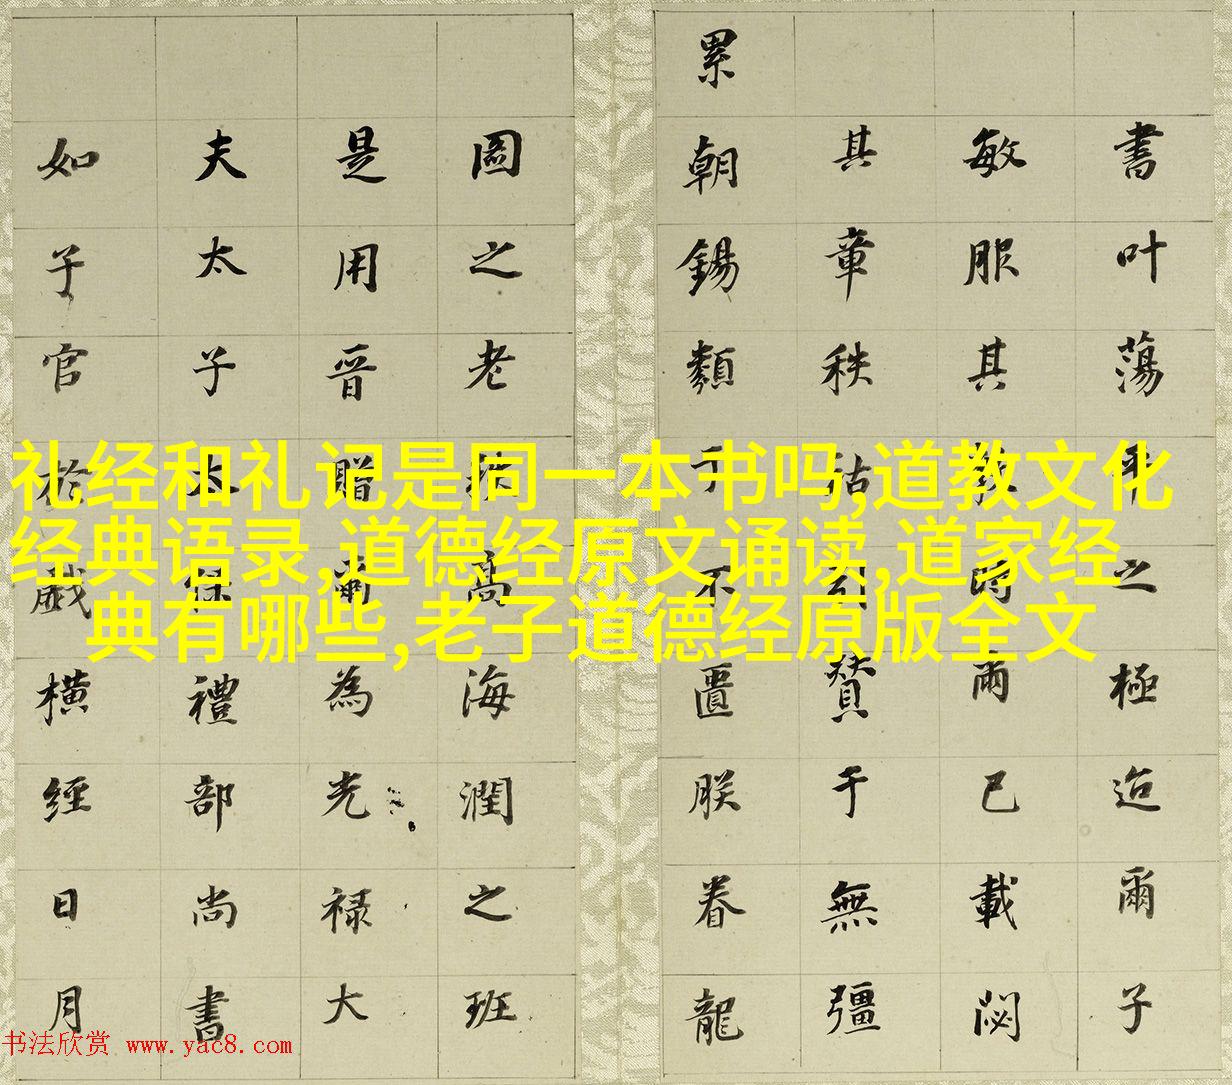 礼经和礼记是同一本书吗,道教文化
经典语录,道德经原文诵读,道家经
典有哪些,老子道德经原版全文
書叶蕩平之極迨爾子
敏服其教爾已載閟
其章秩祜贊于無疆
累朝錫類于不匱朕眷龍
圖之老高海潤之班
是用晉贈爾為光祿大
夫太子太保禮部尚書
如子官於戲橫經日月
书法欣赏 www.yac8.com